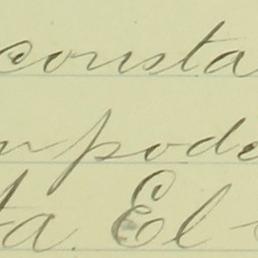 consta
n pode
ta. El